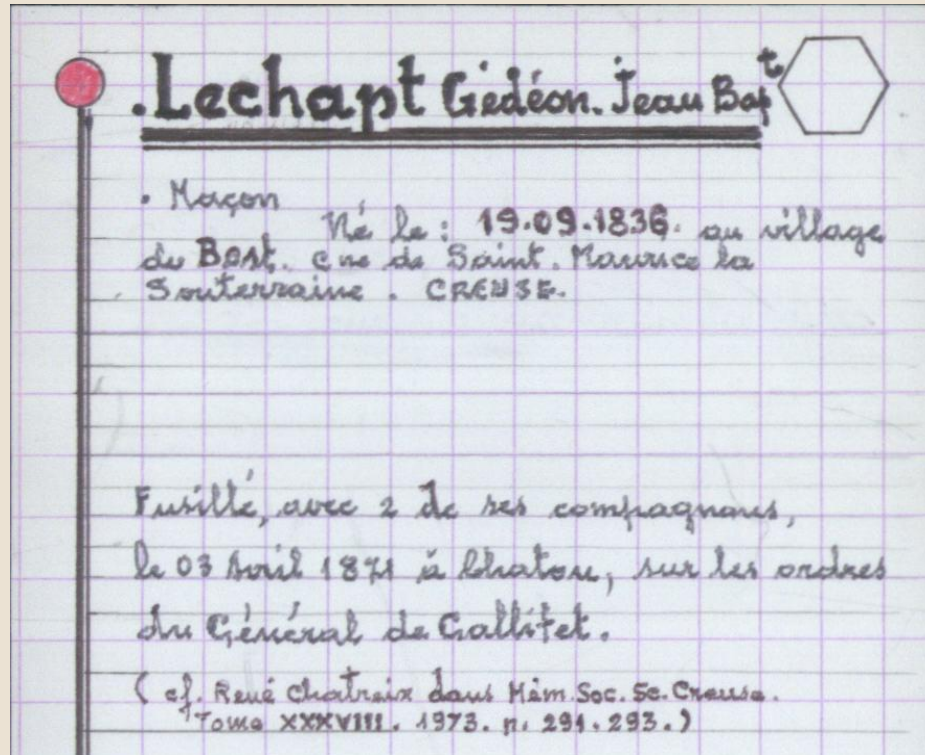 . Lechapt Gédéon. Jean Bapt
. Maçon
Né le : 19.09.1836. au village
du Bost. cne de Saint. Maurice la
Souterraine . CREUSE.
Fusillé, avec 2 de ses compagnons,
le 03 Avril 1871 à Chatou, sur les ordres
du Général de Gallifet.
( cf. René Chatreix dans Mém. Soc. Sc. Creuse.
Tome XXXVIII. 1973. p. 291-293.)